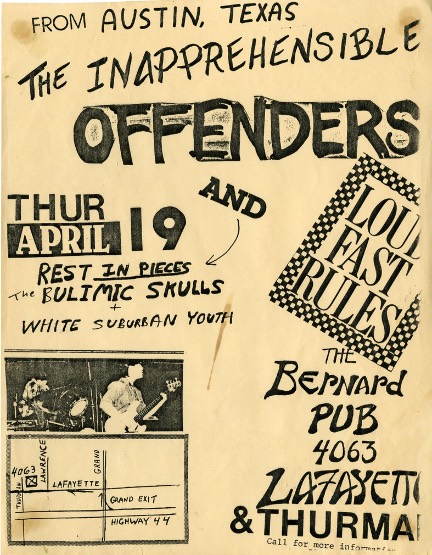 FROM AUSTIN, TEXAS
THE INAPPREHENSIBLE
OFFENDERS
AND
THUR
APRIL 19
REST IN PIECES
The BULIMIC SKULLS
+
WHITE SUBURBAN YOUTH
LOUD
FAST
RULES
THE
Bernard
PUB
4063
LAFAYETT
& THURMA
Call for more information
4063
LAWRENCE
GRAND
THURMAN
LAFAYETTE
GRAND EXIT
HIGHWAY 44